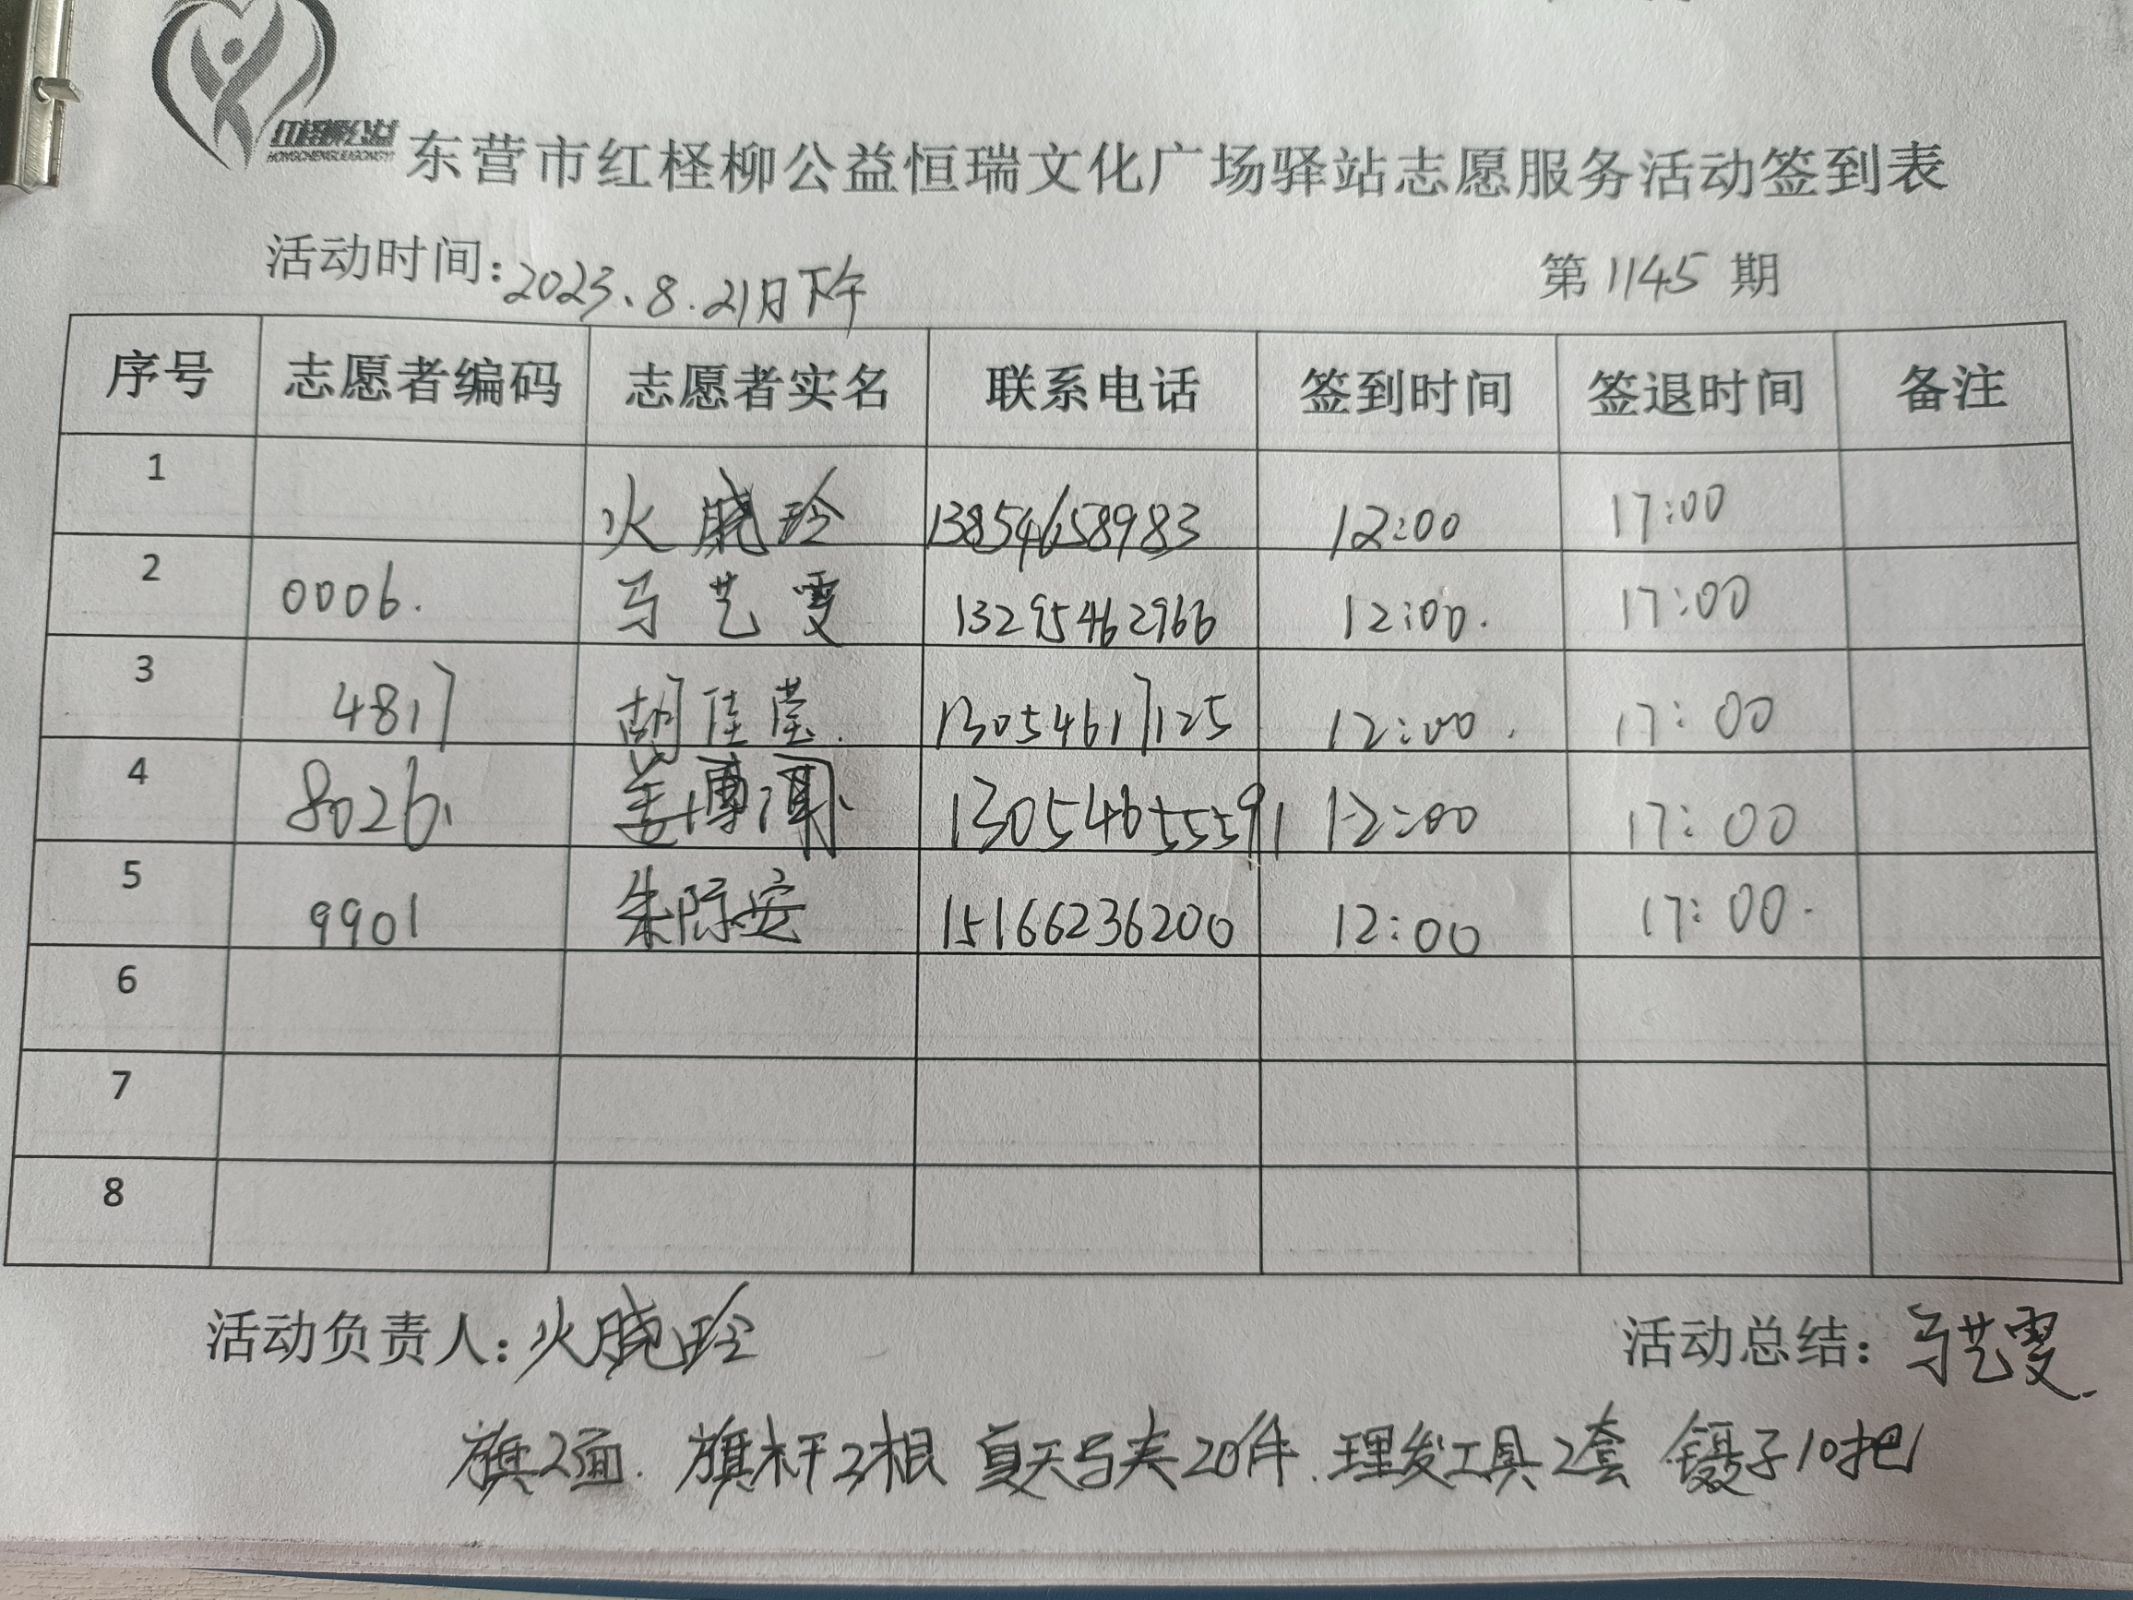 红柽柳公益
HONGCHENGLIUGONGYI
东营市红柽柳公益恒瑞文化广场驿站志愿服务活动签到表
活动时间：2023、8.21日下午 第1145期
序号 志愿者编码 志愿者实名 联系电话 签到时间 签退时间 备注
1 火晓玲 13854658983 12:00 17:00
2 0006. 马艺雯 13295462966 12:00. 17:00
3 4817 胡佳莹. 13054617125 12:00. 17:00
4 8026、 姜博 13054655591 12:00 17:00
5 9901 朱际安 15166236200 12:00 17:00.
6
7
8
活动负责人：火晓玲 活动总结：马艺雯.
旗2面. 旗杆2根 夏天马夹20件. 理发工具2套 镊子10把